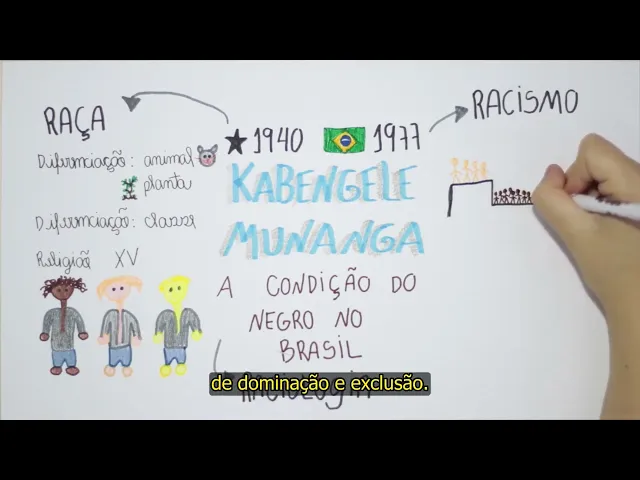 RAÇA
Difurinciação: animal
planta
Difurinciação: classe
Religião XV
★1940 1977
KABENGELE
MUNANGA
A CONDIÇÃO DO
NEGRO NO
BRASIL
RACIOLOGIA
RACISMO
de dominação e exclusão.